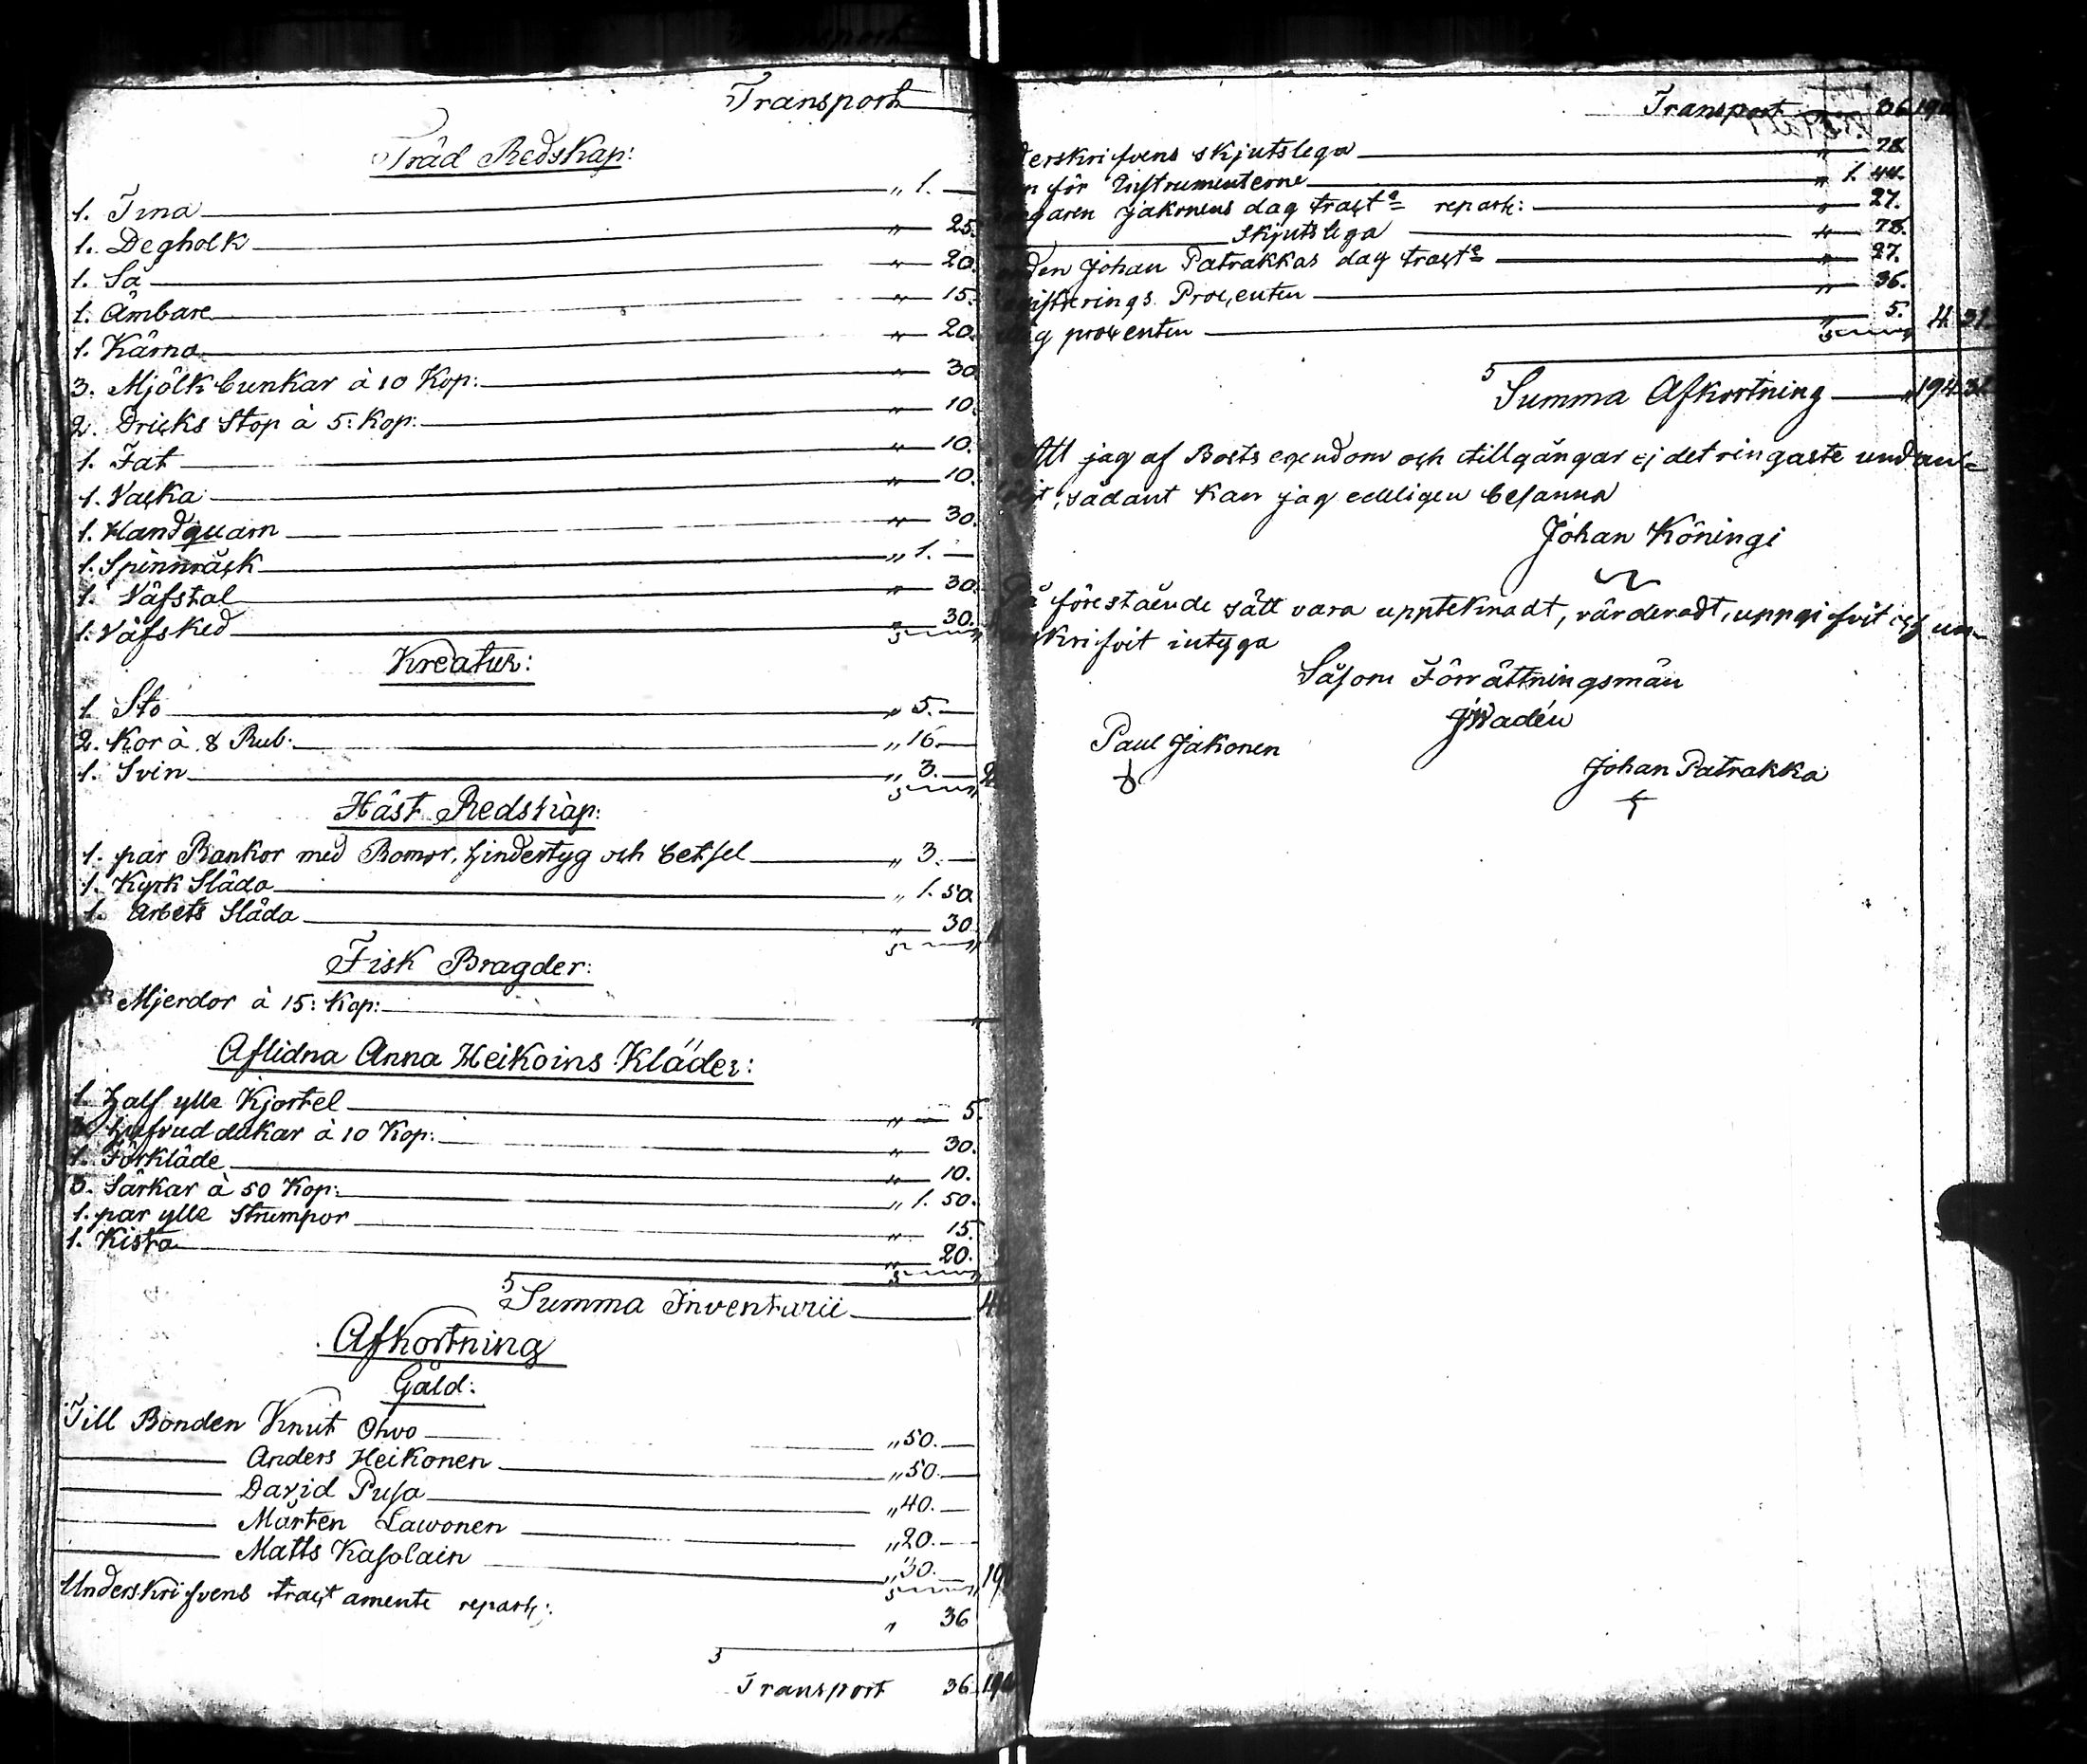 Transport
Träd Redskap:
1. Tina „ 1. —
1. Degholk „ 25.
1. Så „ 20.
1. Ämbare „ 15.
1. Kärna „ 20.
3. Mjölk bunkar à 10 Kop: „ 30
2. Dricks Stop à 5: Kop: „ 10.
1. Fat „ 10.
1. Vacka „ 10.
1. Handquarn „ 30.
1. Spinnråck „ 1. —
1. Väfstol „ 30.
1. Väfsked „ 30.
Kreatur:
1. Sto „ 5. —
2. Kor à 8 Rub: „ 16. —
1. Svin „ 3. —
Häst Redskap:
1. par Rankor med Bomor, hindertyg och betsel „ 3. —
1. Kyrk Släda „ 1. 50
1. Arbets Släda „ 30
Fisk Bragder:
Mjerdor à 15: Kop: „
Aflidna Anna Heikoins Kläder:
1. Half ylle Kjortel „ — 5.
3. hufvud dukar à 10 Kop: „ 30.
1. Förkläde „ 10.
3. Särkar à 50 Kop: „ 1. 50.
1. par ylle strumpor „ 15.
1. Kista „ 20.
Summa Inventarii
Afkortning
Gäld:
Till Bonden Knut Ohvo „ 50. —
Anders Heikonen „ 50. —
David Pusa „ 40. —
Mårten Lawonen „ 20. —
Matts Kasolain „ 30. — 190
Underskrifvens tractamente repart: „ 36
Transport 36. 190
Transport „ 36. 190
derskrifvens skjutslega „ 78.
n för Instrumenterne „ 1. 44.
garen Jakonens dag tract:e repart: „ 27.
Skjutslega „ 78.
den Johan Patrakkas dag tract:e „ 27.
isterings Procenten „ 36.
g procenten „ 5. 4. 31.
Summa Afkortning „ 194. 31
Att jag af Boets egendom och tillgångar ej det ringaste undan-
, sådant kan jag edeligen besanna
Johan Köningi
På förestående sätt vara uppteknadt, värderadt, uppgifvit och un-
skrifvit intyga
Såsom Förrättningsmän
JWadén
Paul Jakonen
Johan Patrakka